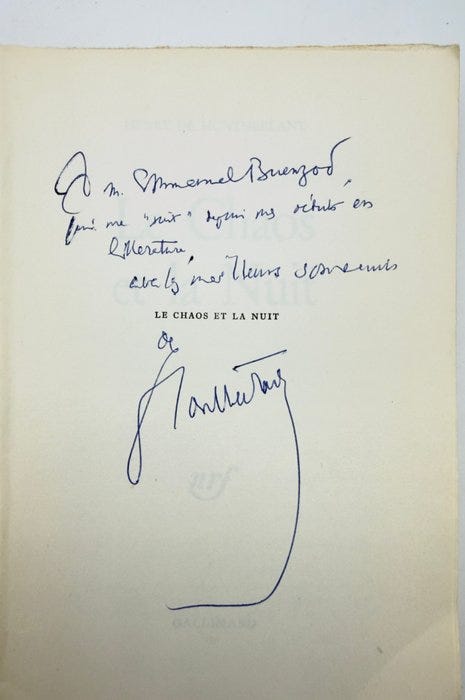 À M. Emmanuel Buenzod,
qui me "suit" depuis mes débuts en
littérature,
avec les meilleurs souvenirs
LE CHAOS ET LA NUIT
de
Montherlant
HENRY DE MONTHERLANT
Le Chaos
et la Nuit
nrf
GALLIMARD